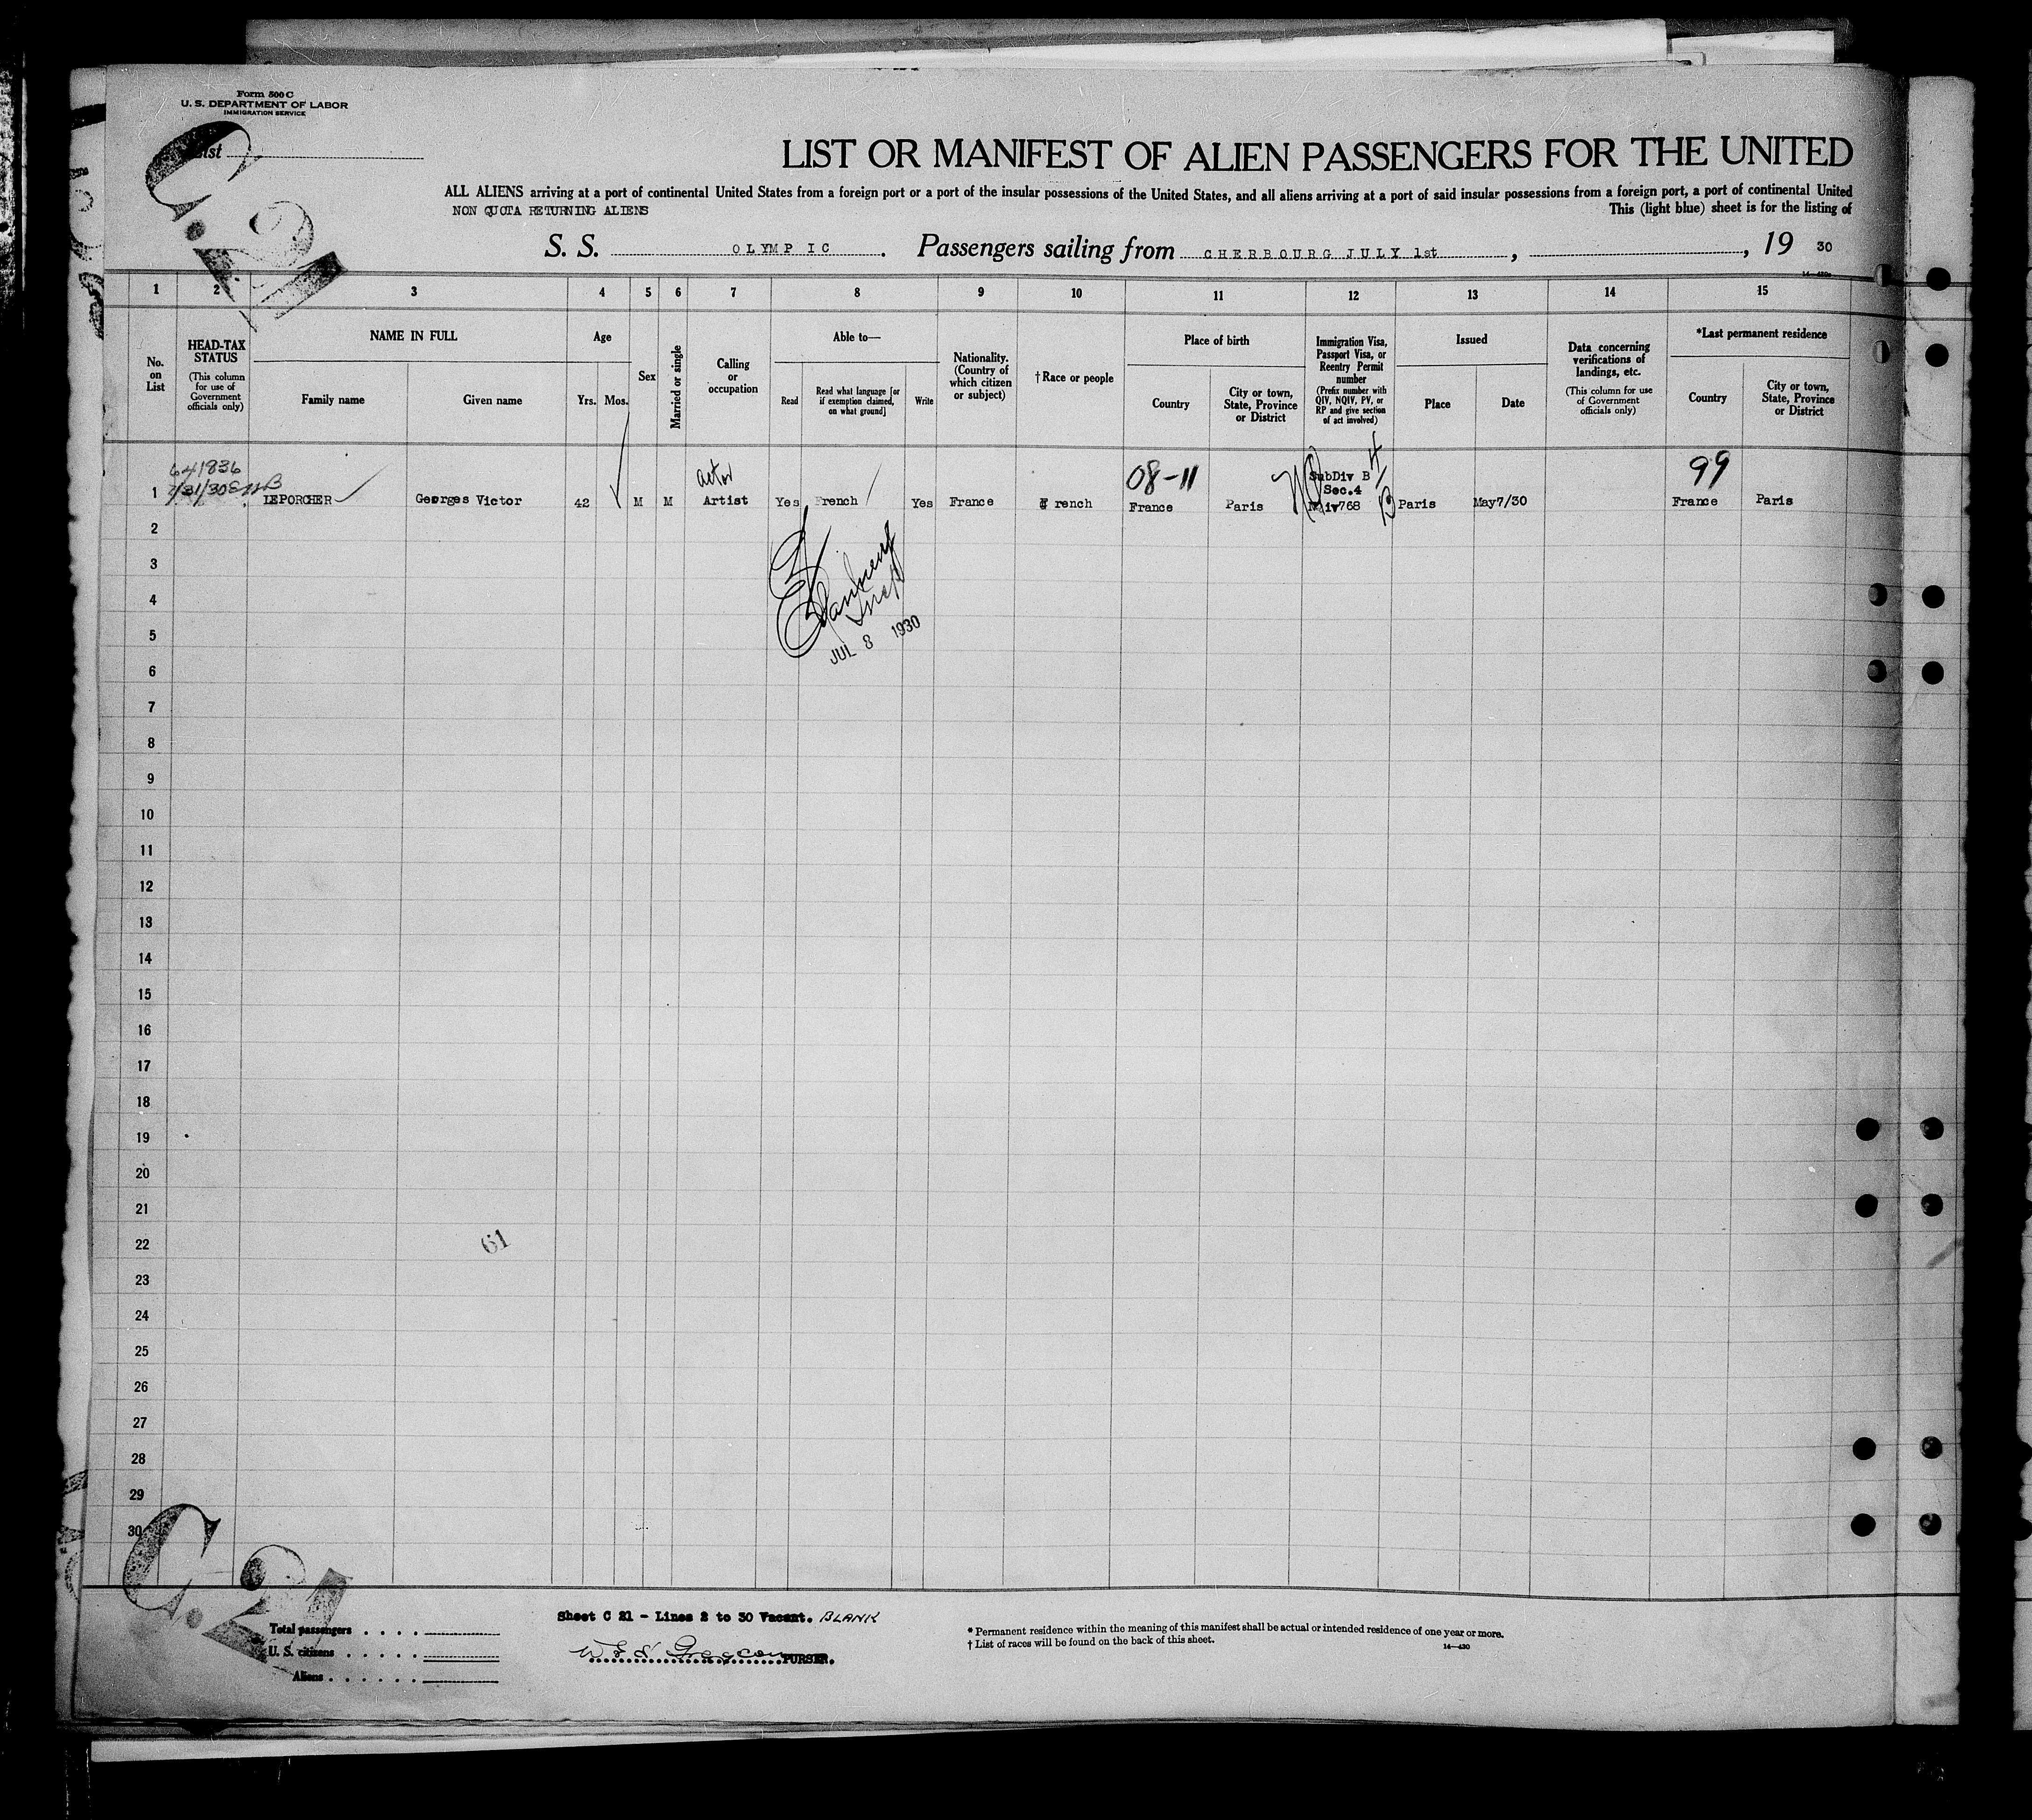 Form 500 C
U. S. DEPARTMENT OF LABOR
IMMIGRATION SERVICE
List
C. 21
LIST OR MANIFEST OF ALIEN PASSENGERS FOR THE UNITED
ALL ALIENS arriving at a port of continental United States from a foreign port or a port of the insular possessions of the United States, and all aliens arriving at a port of said insular possessions from a foreign port, a port of continental United
NON QUOTA RETURNING ALIENS
This (light blue) sheet is for the listing of
S. S. OLYMPIC. Passengers sailing from CHERBOURG JULY 1st, , 19 30
1 2 3 4 5 6 7 8 9 10 11 12 13 14 15
No. on List
HEAD-TAX STATUS
(This column for use of Government officials only)
NAME IN FULL
Family name
Given name
Age
Yrs. Mos.
Sex
Married or single
Calling or occupation
Able to—
Read
Read what language [or if exemption claimed, on what ground]
Write
Nationality. (Country of which citizen or subject)
†Race or people
Place of birth
Country
City or town, State, Province or District
Immigration Visa, Passport Visa, or Reentry Permit number
(Prefix number with QIV, NQIV, PV, or RP and give section of act involved)
Issued
Place
Date
Data concerning verifications of landings, etc.
(This column for use of Government officials only)
*Last permanent residence
Country
City or town, State, Province or District
641836
7/31/30
actor
08-11
SubDiv B
Sec.4
4
B
99
1 LEPORCHER Georges Victor 42 M M Artist Yes French Yes France French France Paris 768 Paris May7/30 France Paris
2
3
4
5
JUL 8 1930
6
7
8
9
10
11
12
13
14
15
16
17
18
19
20
21
22
61
23
24
25
26
27
28
29
30
C. 21
Sheet C 21 - Lines 2 to 30 Vacant. BLANK
PURSER.
Total passengers
U. S. citizens
Aliens
* Permanent residence within the meaning of this manifest shall be actual or intended residence of one year or more.
† List of races will be found on the back of this sheet.
14—430